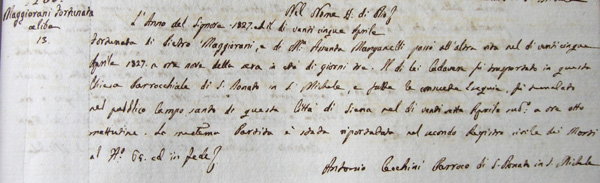 Maggiorani Fortunata
celibe
13.
Nel Nome SS. di Dio
L'Anno del Signore 1827. ed il dì venti cinque Aprile
Fortunata di Pietro Maggiorani, e di Mª. Assunta Manganelli passò all'altra vita nel dì venticinque
Aprile 1827. a ore nove della sera in età di giorni tre. Il di lei Cadavere fù trasportato in questa
Chiesa Parrocchiale di S. Donato in S. Michele, e fatte le consuete Esequie, fù tumulato
nel pubblico Campo santo di questa Città di Siena nel dì venti sette Aprile sudº. a ore otto
mattutine. La medema Partita è stata riportata nel secondo Registro civile dei Morti
al Nº. 65. ed in fede
Antonio Cecchini Parroco di S. Donato in S. Michele